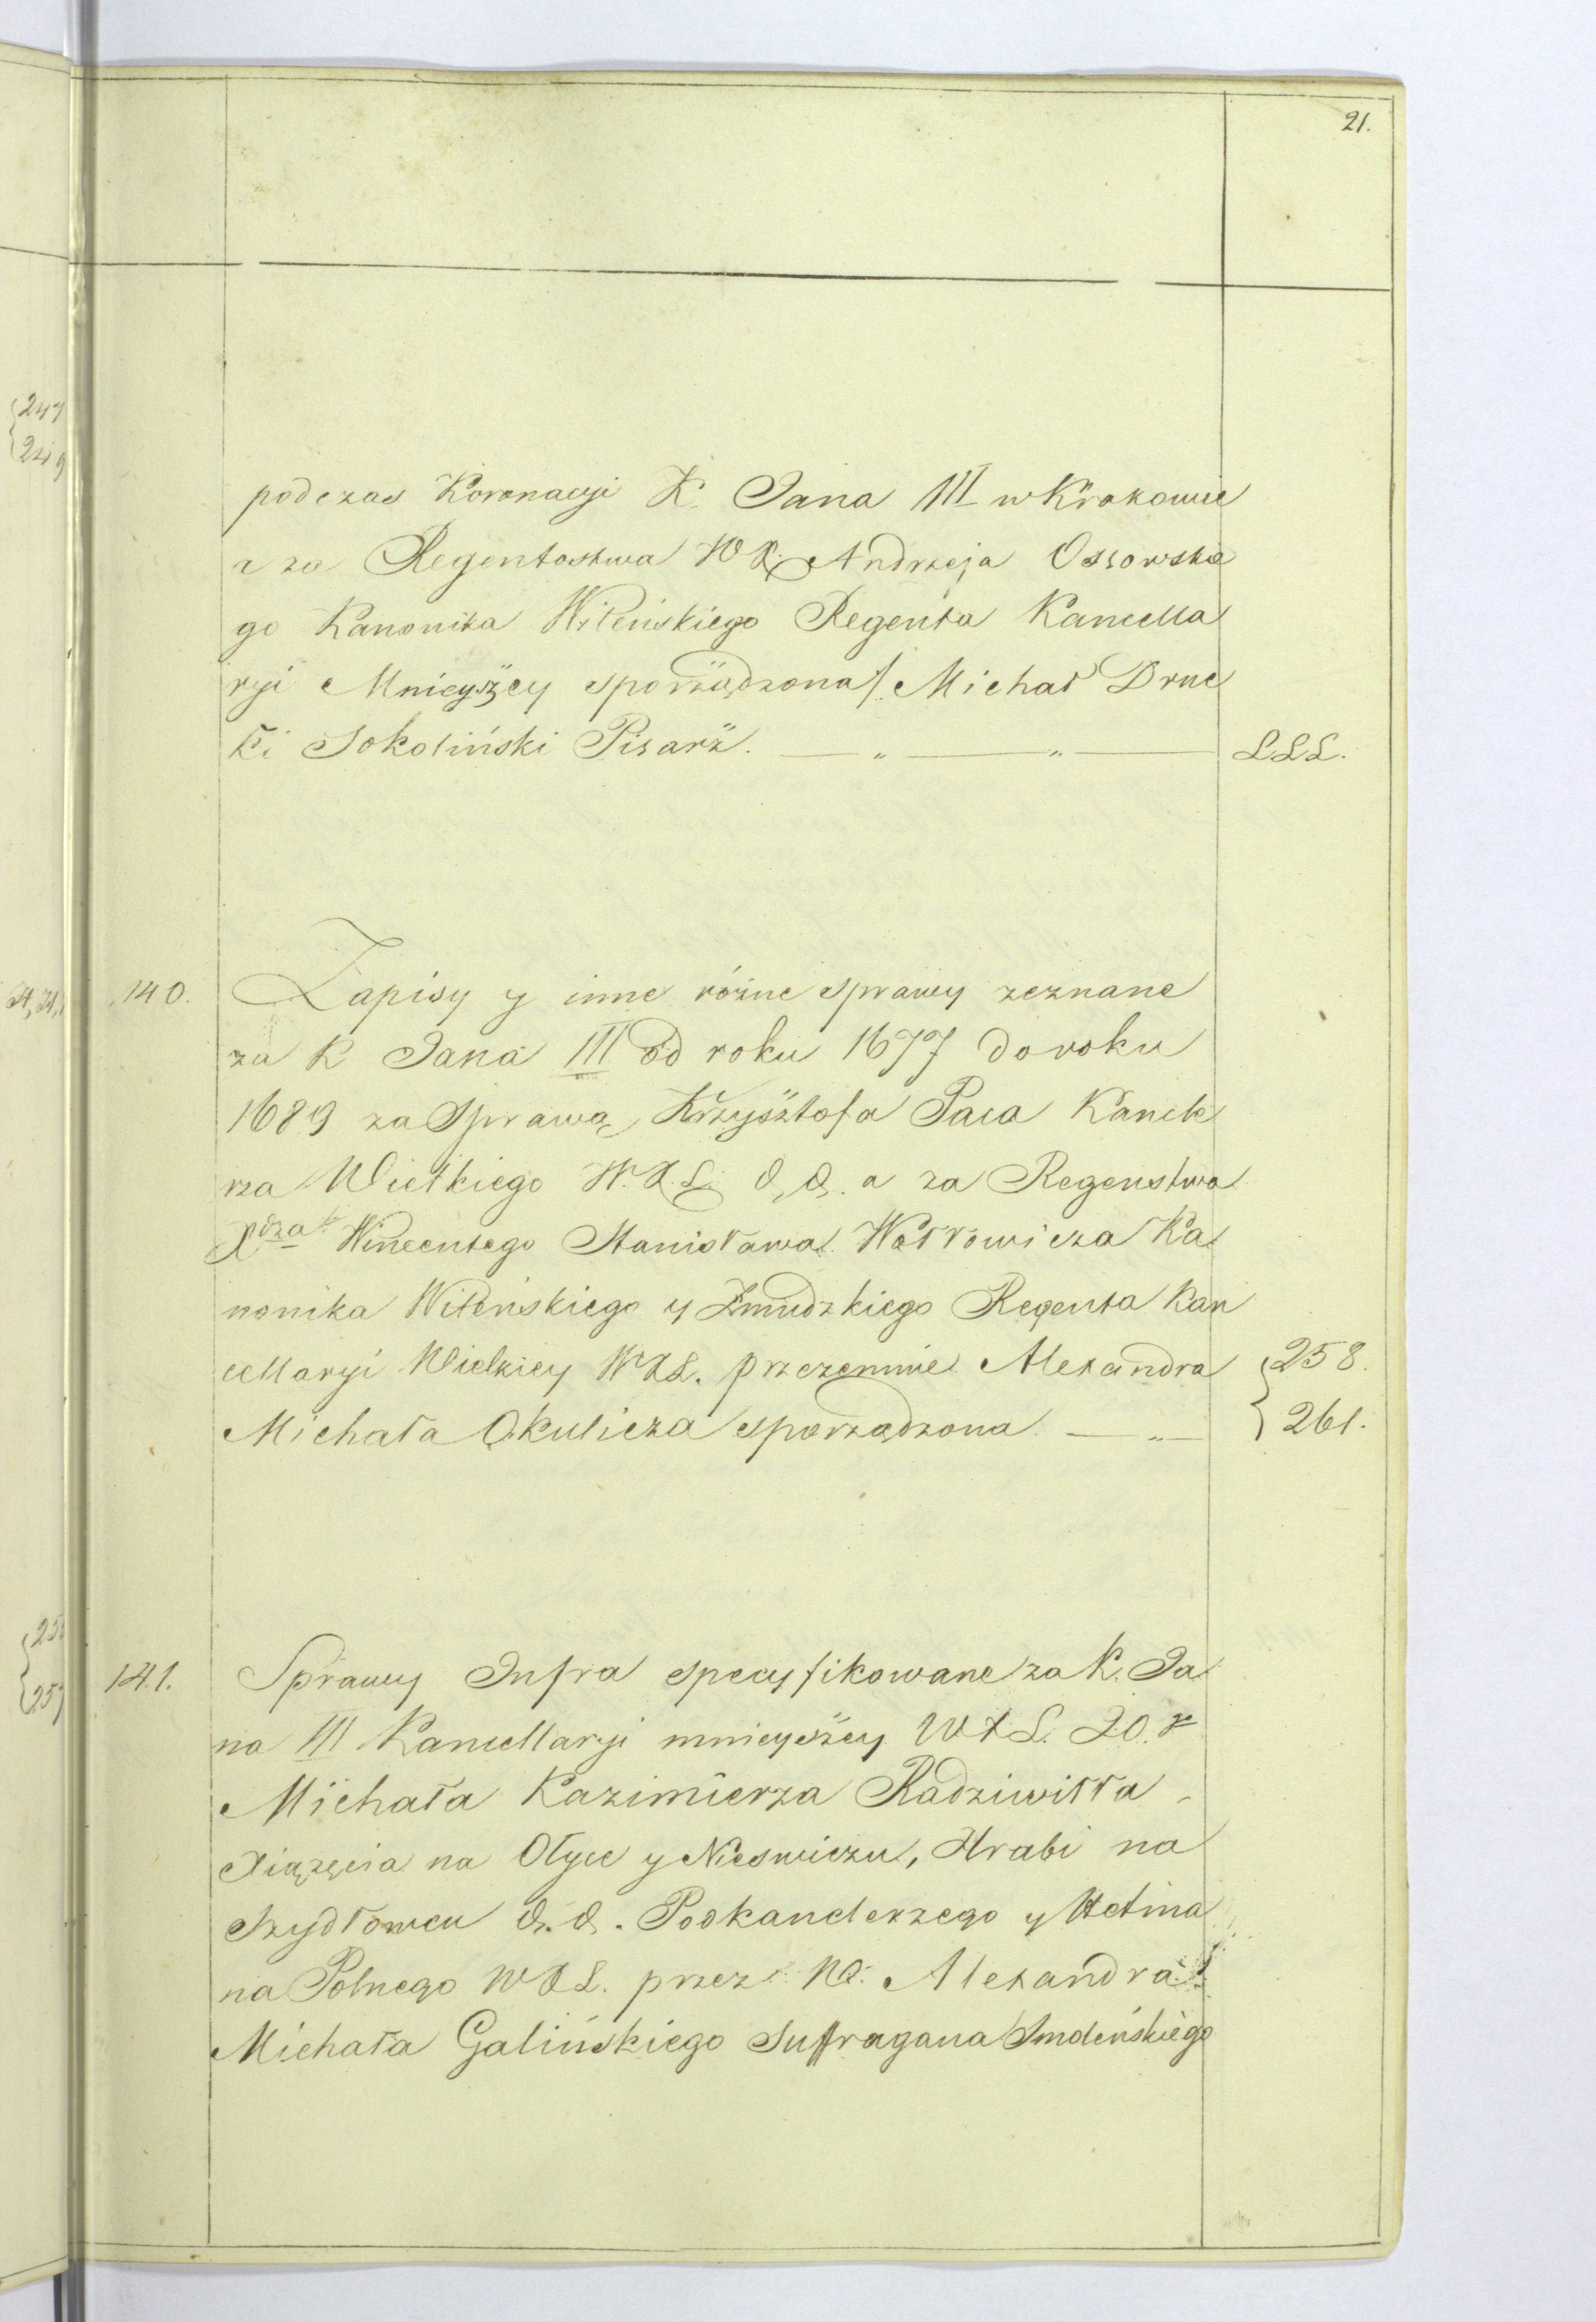 21.
podczas Koronacyi K. Jana III w Krakowie
a za Regentostwa WX. Andrzeja Ossowskie
go Kanonika Wileńskiego Regenta Kancella
ryi Mnieyszey sporządzona/. Michał Druc
ki Sokoliński Pisarz. — „ — „ — LLL.
140. Zapisy y inne różne sprawy zeznane
za K Jana III od roku 1677 do roku
1689 za Sprawą Krzysztofa Paca Kancle
rza Wielkiego W.X.L. &,&. a za Regenstwa
Xdza Wincentego Stanisława Wołłowicza Ka
nonika Wileńskiego y Żmudzkiego Regenta Kan
cellaryi Wielkiey WXL. przezemnie Alexandra 258.
Michała Okulicza sporządzona. — „ — 261.
141. Sprawy Infra specyfikowane za K. Ja
na III Kancellaryi mnieyszey WXL. JO. X
Michała Kazimierza Radziwiłła
Xiążęcia na Ołyce y Nieswiezu, Hrabi na
Szydłowcu &. &. Podkanclerzego y Hetma
na Polnego WXL. przez Alexandra
Michała Galińskiego Suffragana Smoleńskiego
247
249